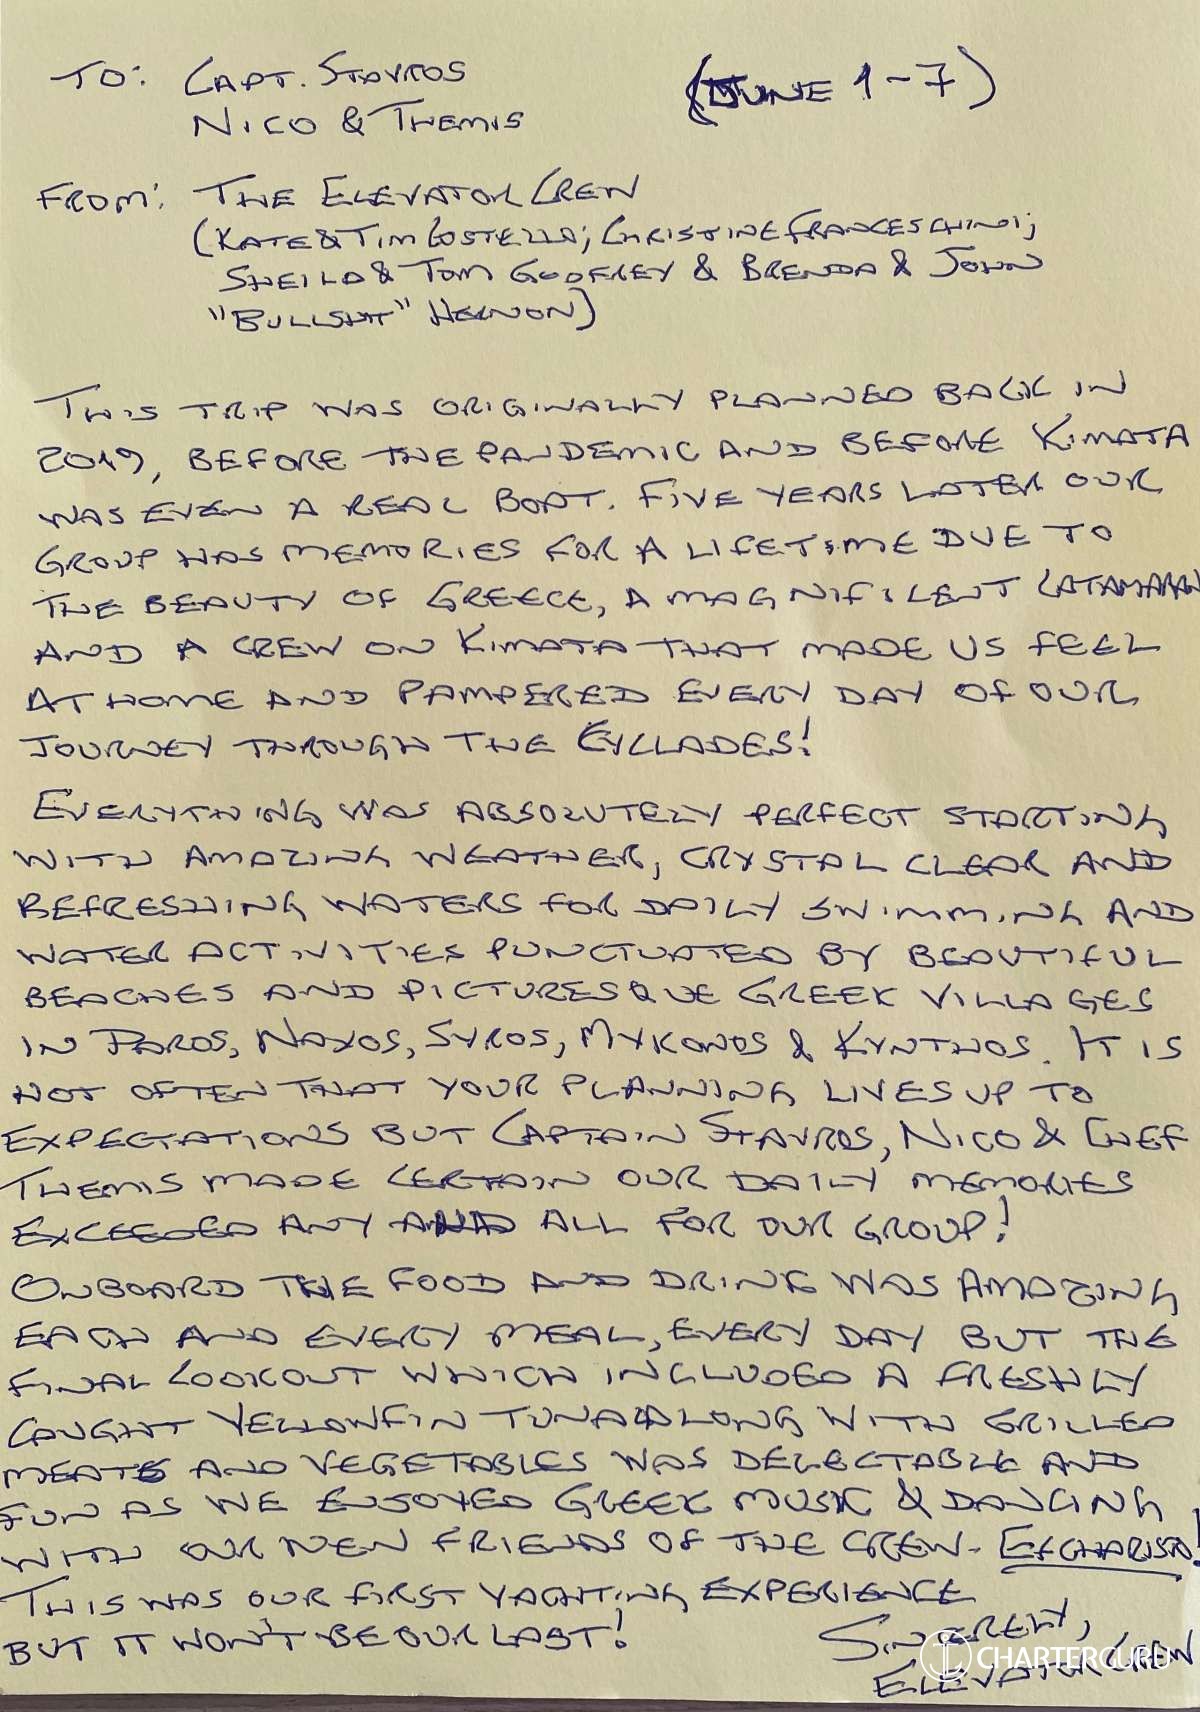 TO: CAPT. STAVROS (JUNE 1-7)
NICO & THEMIS
FROM: THE ELEVATOR CREW
(KATE & TIM COSTELLO; CHRISTINE FRANCESCHINI;
SHEILA & TOM GODFREY & BRENDA & JOHN
"BULLSHIT" HERNON)
THIS TRIP WAS ORIGINALLY PLANNED BACK IN
2019, BEFORE THE PANDEMIC AND BEFORE KIMATA
WAS EVEN A REAL BOAT. FIVE YEARS LATER OUR
GROUP HAS MEMORIES FOR A LIFETIME DUE TO
THE BEAUTY OF GREECE, A MAGNIFICENT CATAMARAN
AND A CREW ON KIMATA THAT MADE US FEEL
AT HOME AND PAMPERED EVERY DAY OF OUR
JOURNEY THROUGH THE CYLLADES!
EVERYTHING WAS ABSOLUTELY PERFECT STARTING
WITH AMAZING WEATHER, CRYSTAL CLEAR AND
REFRESHING WATERS FOR DAILY SWIMMING AND
WATER ACTIVITIES PUNCTUATED BY BEAUTIFUL
BEACHES AND PICTURESQUE GREEK VILLAGES
IN PAROS, NAXOS, SYROS, MYKONOS & KYNTHOS. IT IS
NOT OFTEN THAT YOUR PLANNING LIVES UP TO
EXPECTATIONS BUT CAPTAIN STAVROS, NICO & CHEF
THEMIS MADE CERTAIN OUR DAILY MEMORIES
EXCEEDED ANY AND ALL FOR OUR GROUP!
ONBOARD THE FOOD AND DRINK WAS AMAZING
EACH AND EVERY MEAL, EVERY DAY BUT THE
FINAL COOKOUT WHICH INCLUDED A FRESHLY
CAUGHT YELLOWFIN TUNA ALONG WITH GRILLED
MEATS AND VEGETABLES WAS DELECTABLE AND
FUN AS WE ENJOYED GREEK MUSIC & DANCING
WITH OUR NEW FRIENDS OF THE CREW - EFCHARISTO!
THIS WAS OUR FIRST YACHTING EXPERIENCE
BUT IT WON'T BE OUR LAST!
SINCERELY,
ELEVATOR CREW
CHARTERGURU